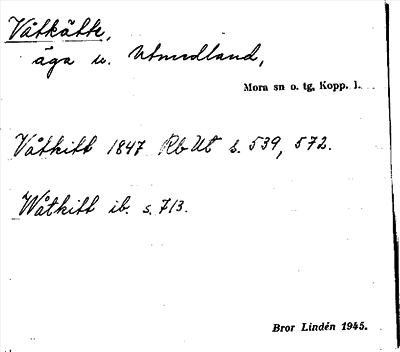 Våtkätte,
äga u. Utmedland,
Mora sn o. tg, Kopp. l.
Våtkitt 1847 Rb Ut s. 539, 572.
Wåtkitt ib. s. 713.
Bror Lindén 1945.